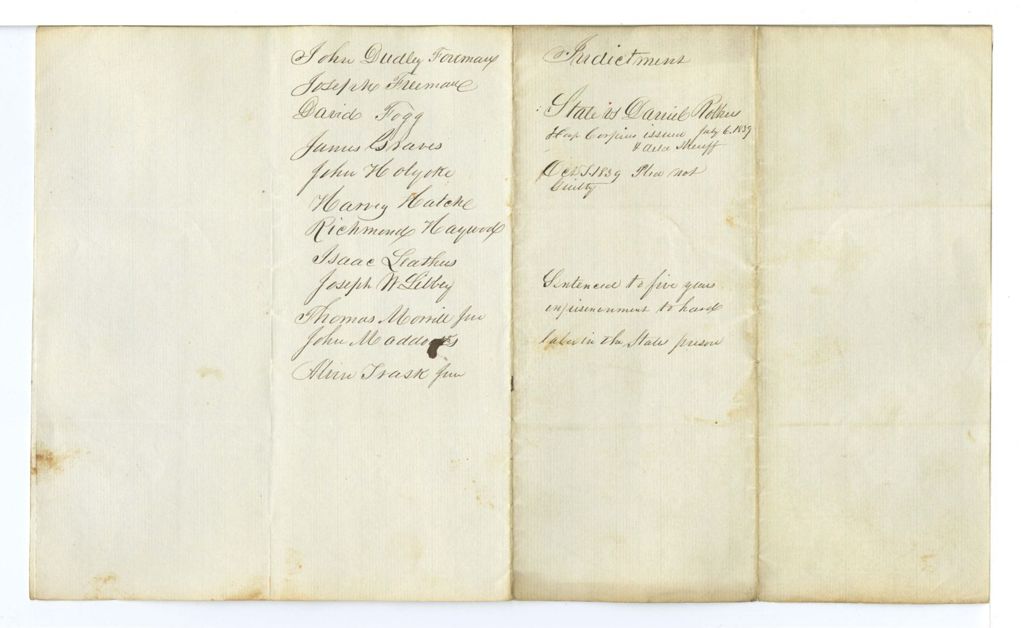 John Dudley Foreman
Joseph Freeman
David Fogg
James Graves
John Holyoke
Harvey Hatche
Richmond Haywood
Isaac Leathers
Joseph W Libbey
Thomas Morrill jun
John Maddocks
Alvin Trask jun
Indictment
State vs Daniel
issued July 6. 1839
Sheriff
Oct 1839 Plea not
Guilty
Sentenced to five years
imprisonment to hard
labor in the State prison